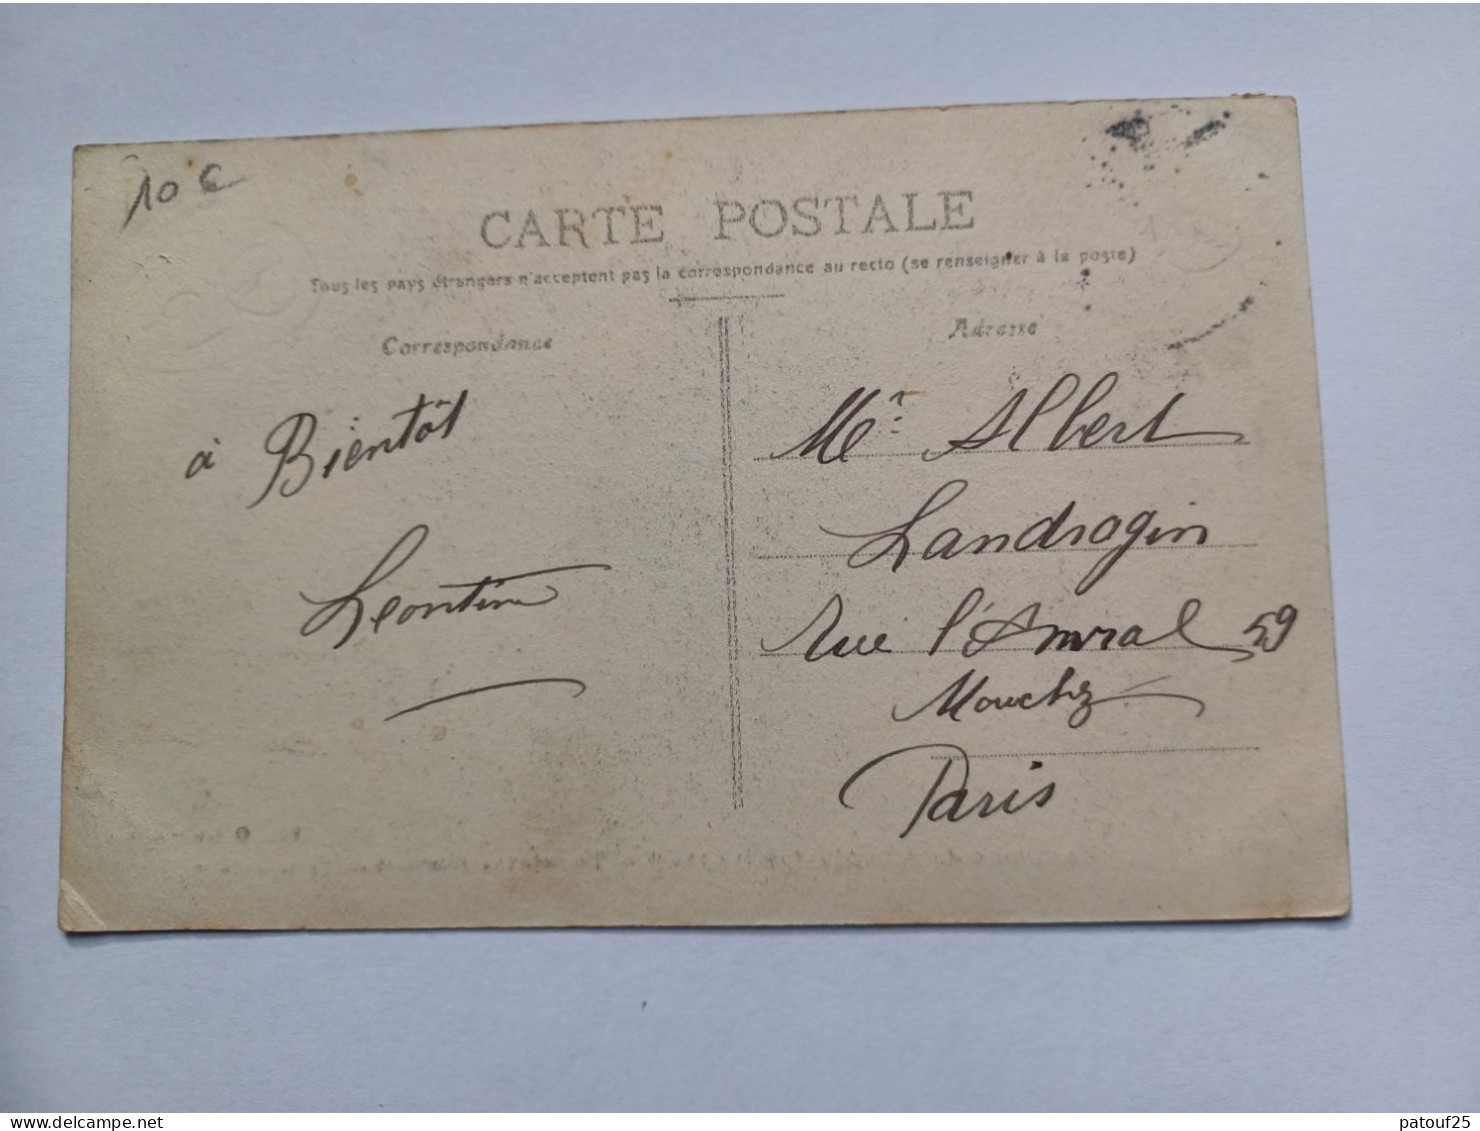 10 €
CARTE POSTALE
Tous les pays étrangers n'acceptent pas la correspondance au recto (se renseigner à la poste)
Correspondance
Adresse
à Bientôt
Léontine
Mr Albert
Landragin
Rue l'Amiral 59
Mouchez
Paris
patouf25